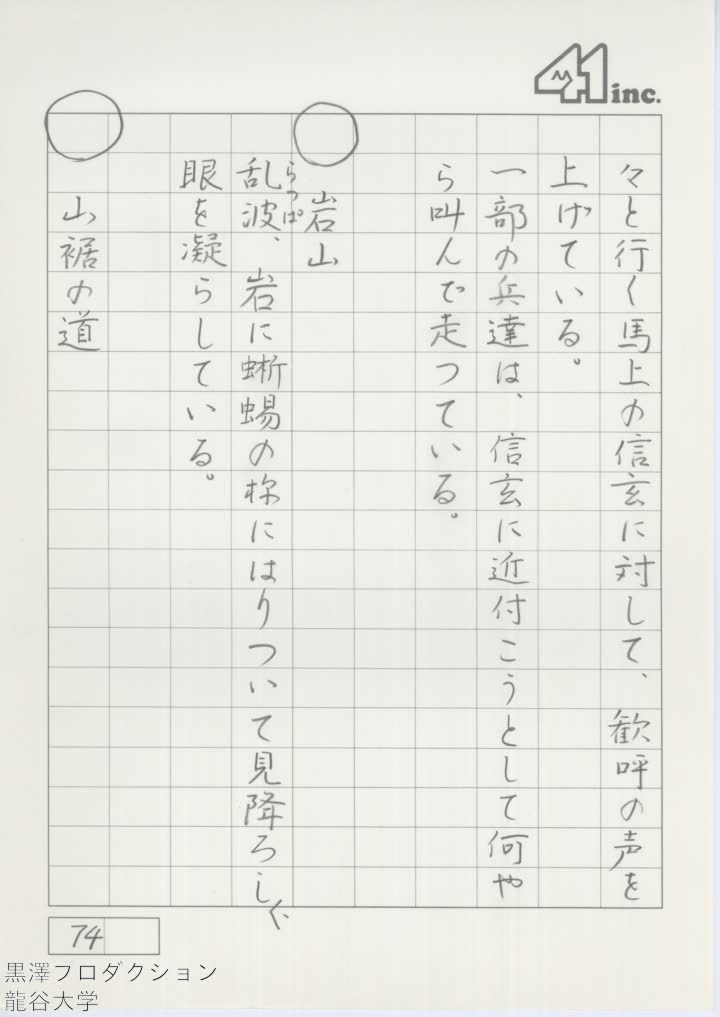 41 inc.
々と行く馬上の信玄に対して、歓呼の声を
上げている。
一部の兵達は、信玄に近付こうとして何や
ら叫んで走っている。
○ 岩山
らっぱ
乱波、岩に蜥蜴の様にはりついて見降ろし、
眼を凝らしている。
○ 山裾の道
74
黒澤プロダクション
龍谷大学